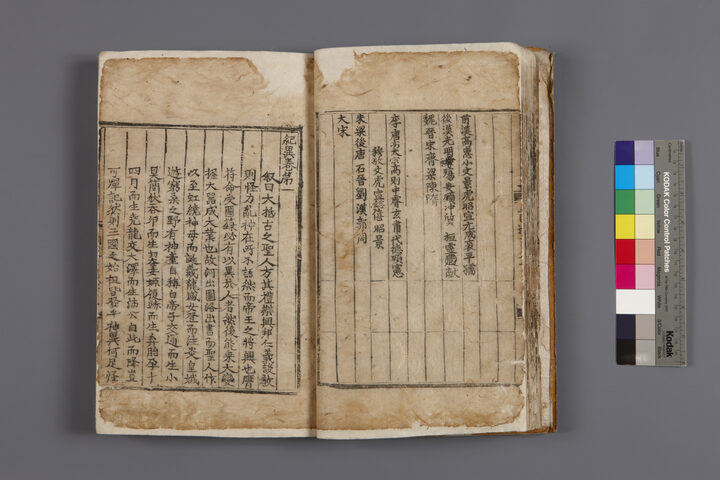 前漢高惠小文景虎昭宣元成哀平孺
後漢光明章 殤安順冲質 桓靈獻
魏晉宋齊梁陳隋
李唐太宗高則中睿玄肅代德順憲
穆敬文虎宣懿僖昭景
朱梁後唐石晉劉漢郭周
大宋
紀異卷第一
叙曰大抵古之聖人方其禮樂興邦仁義設教
則怪力亂神在所不語然而帝王之將興也膺
符命受圖籙必有以異於人者然後能乘大變
握大器成大業也故河出圖洛出書而聖人作
以至虹繞神母而誕羲龍感女登而注炎皇娥
遊窮桑之野有神童自稱白帝子交通而生小
昊簡狄吞卵而生契姜嫄履跡而生弃胎孕十
四月而生堯龍交大澤而生沛公自此而降豈
可殫記然則三國之始祖皆發乎神異何足怪
KODAK Color Control Patches
Kodak
Blue
Cyan
Green
Yellow
Red
Magenta
White
3/Color
Black